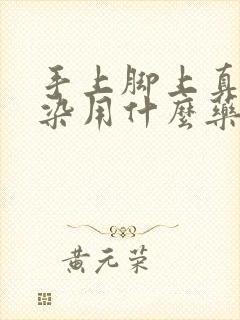 手上脚上真
染用什麼藥
黄元荣